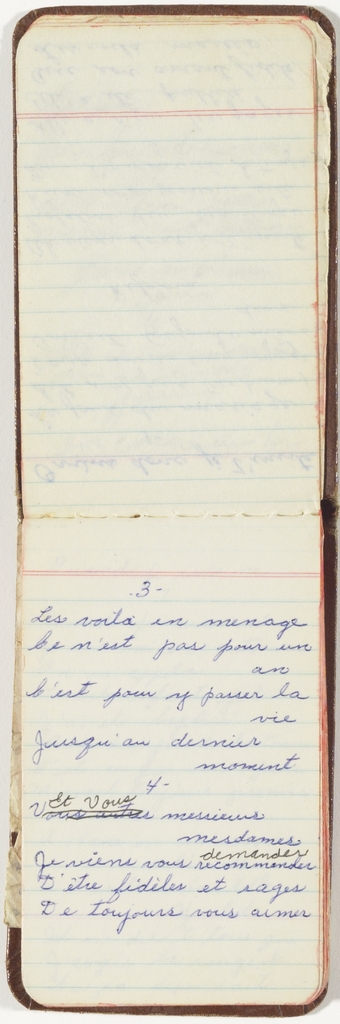 .3-
Les voilà en menage
Ce n'est pas pour un
an
C'est pour y passer la
vie
Jusqu'au dernier
moment
4-
Et Vous
Vous autres messieurs
mesdames
demander
Je viens vous recommender
D'être fidèles et sages
De toujours vous aimer